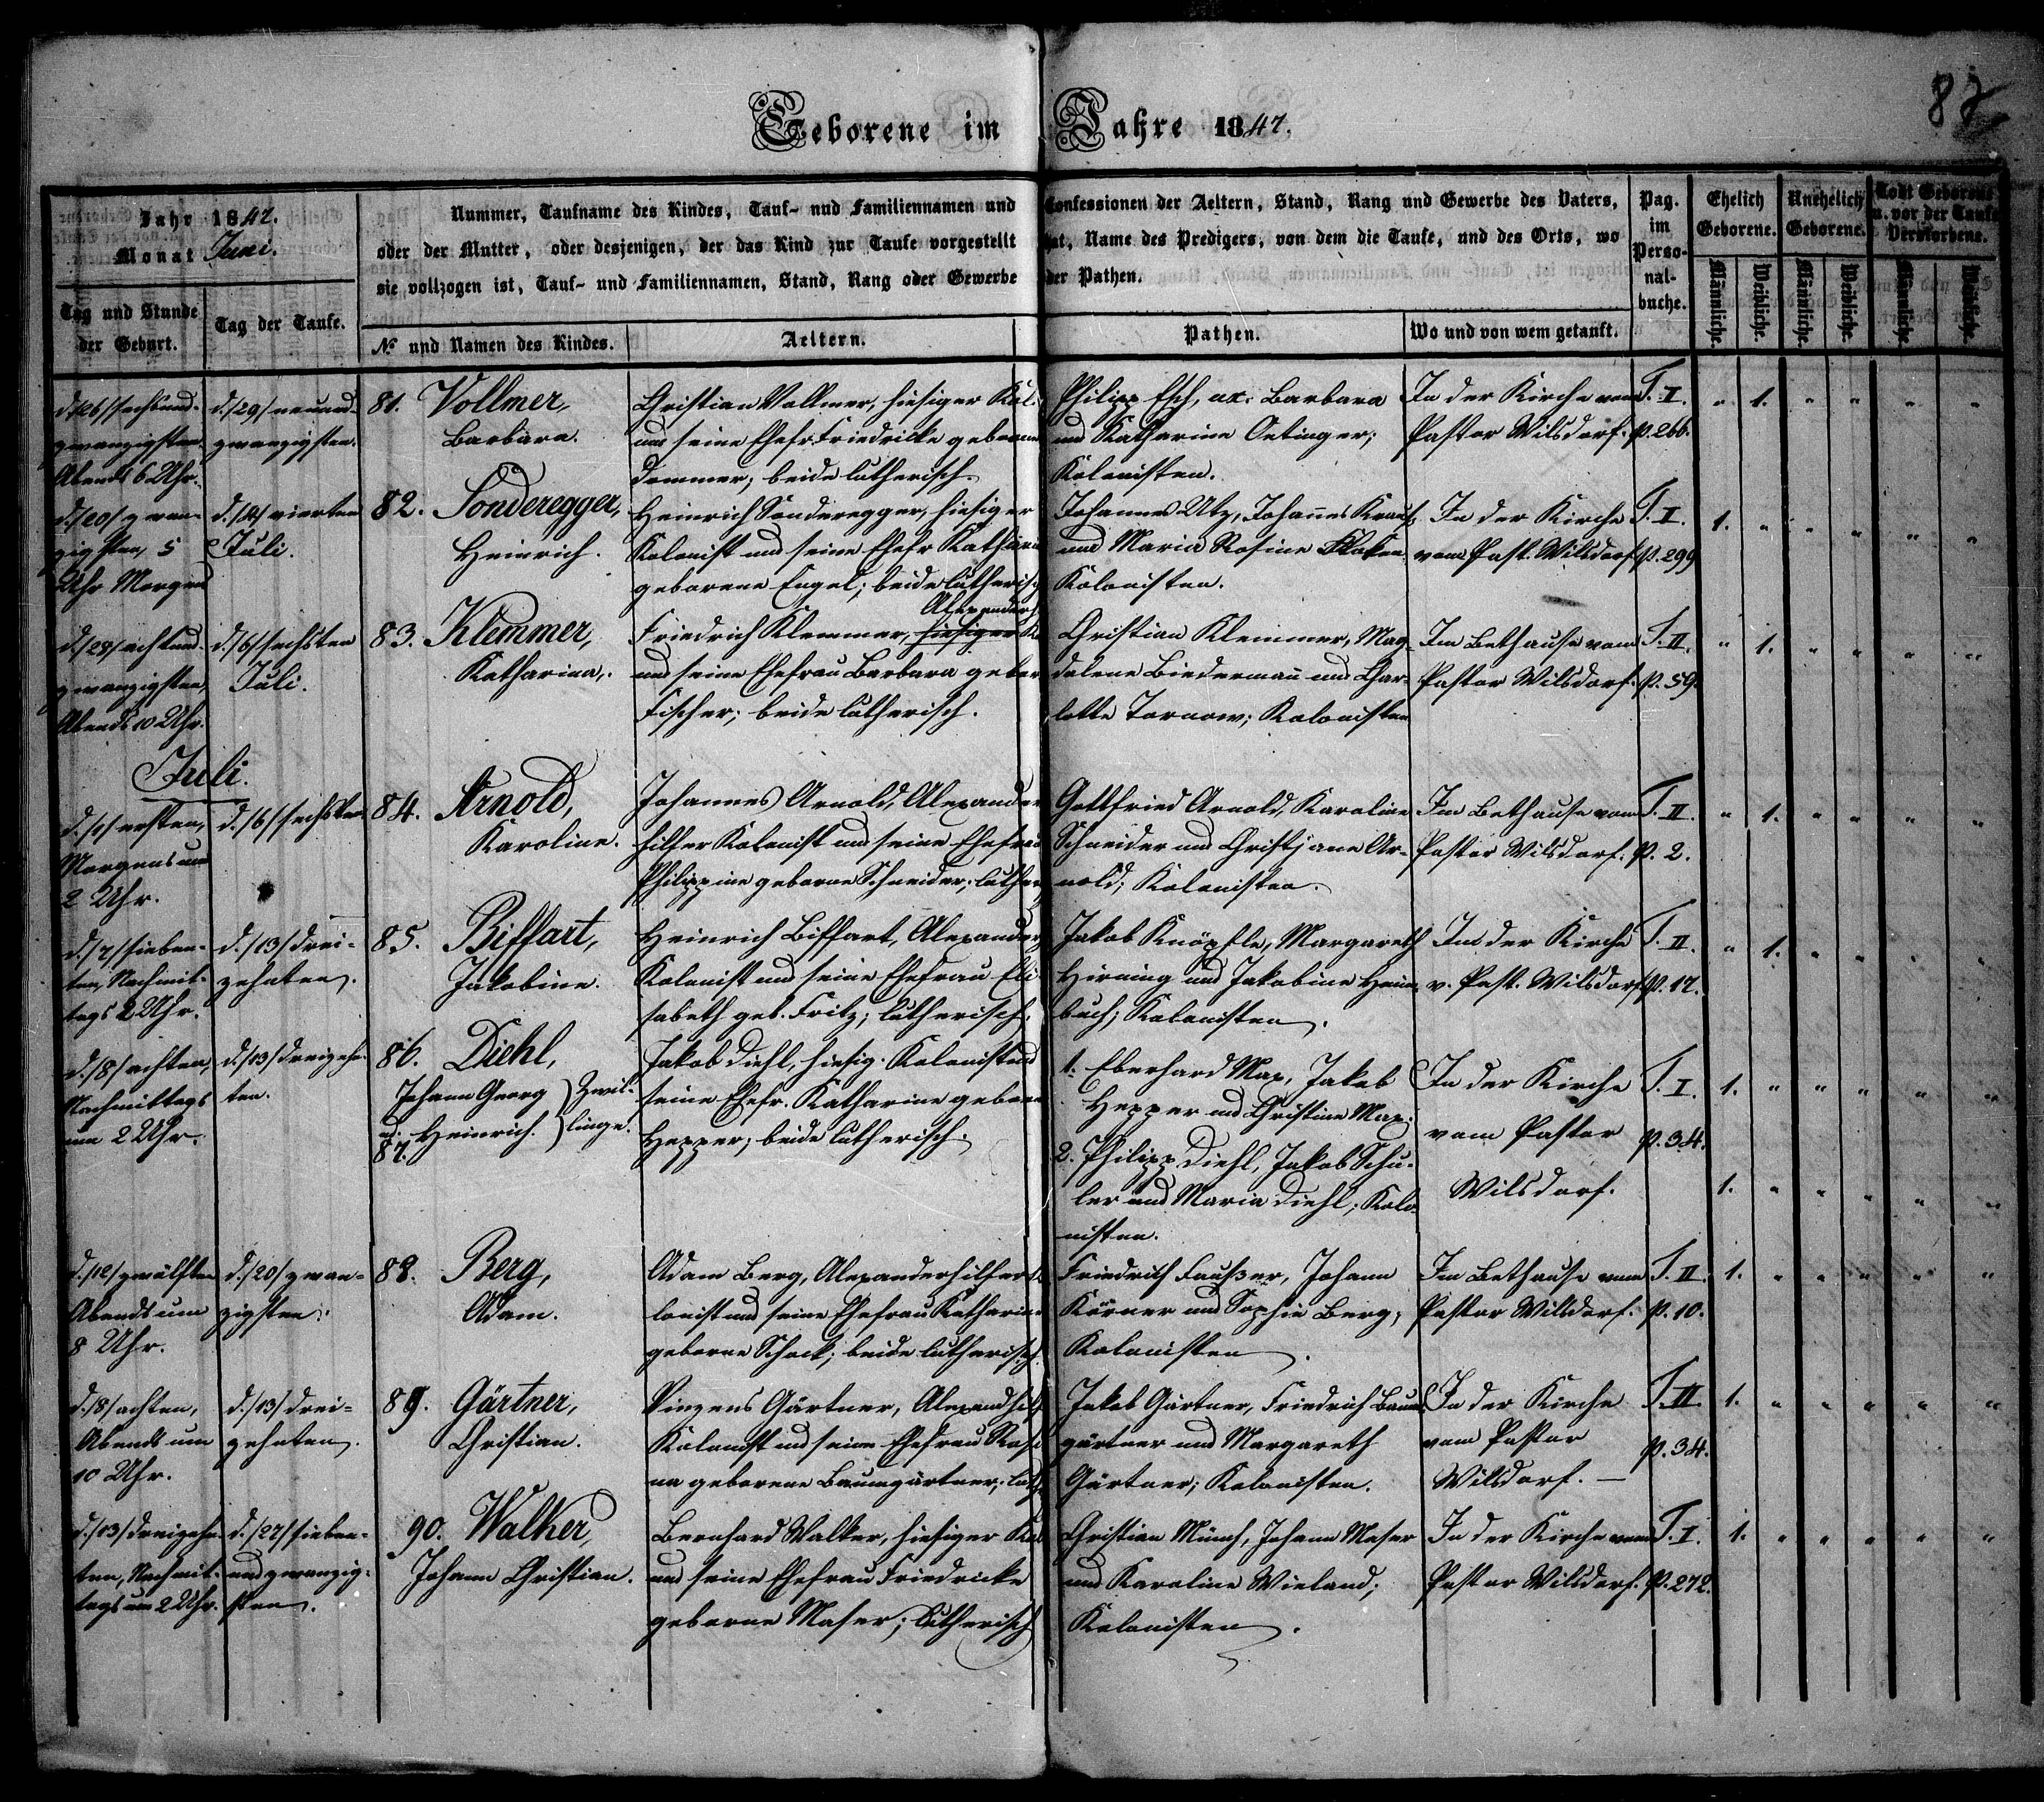 88
Geborene im Jahre 1847.
Jahr 1847.
Monat Juni.
Tag und Stunde der Geburt.
Tag der Taufe.
Nummer, Taufname des Kindes, Tauf- und Familiennamen und Confessionen der Aeltern, Stand, Rang und Gewerbe des Vaters,
oder der Mutter, oder desjenigen, der das Kind zur Taufe vorgestellt hat, Name des Predigers, von dem die Taufe, und des Orts, wo
sie vollzogen ist, Tauf- und Familiennamen, Stand, Rang oder Gewerbe der Pathen.
№ und Namen des Kindes.
Aeltern.
Pathen.
Wo und von wem getauft.
Pag. im Perso-nal-buche.
Ehelich Geborene.
Unehelich Geborene.
Todt Geborene u. vor der Taufe Verstorbene.
Männliche. Weibliche. Männliche. Weibliche. Männliche. Weibliche.
d./26/ sechsund-
zwanzigsten
Abends 6 Uhr.
d./29/ neunund-
zwanzigsten.
81. Vollmer,
Barbara.
Christian Vollmer, hiesiger Kol.
und seine Ehefr Friedricke geborne
Dommer; beide lutherisch.
Philipp Esch, ux. Barbara
und Katharine Oetinger;
Kolonisten.
In der Kirche vom
Pastor Wilsdorf.
T. I.
p. 266.
" 1. " " " "
d./20/ zwan-
zigsten, 5
Uhr Morgens
d./4/ vierten
Juli.
82. Sonderegger,
Heinrich.
Heinrich Sonderegger, hiesiger
Kolonist und seine Ehefr Katharin
geborene Engel; beide lutherisch
Johannes Utz, Johannes Krauß
und Maria Rosine
Kolonisten.
In der Kirche
vom Past. Wilsdorf
T. I.
p. 299
1. " " " " "
d./28/ achtund-
zwanzigsten,
Abends 10 Uhr.
d./6/ sechsten
Juli.
83. Klemmer,
Katharina.
Alexanderh
Friedrich Klemmer, hiesiger K
und seine Ehefrau Barbara gebor
Fischer; beide lutherisch.
Christian Klemmer, Mag-
dalene Biedermañ und Char-
lotte Tornow; Kolonisten
Im Bethause vom
Pastor Wilsdorf.
T. II.
p. 59.
" 1. " " " "
Juli.
d./1/ ersten,
Morgens um
2 Uhr.
d./6/ sechsten
84. Arnold,
Karoline.
Johannes Arnold, Alexander
hilfer Kolonist und seine Ehefrau
Philippine geborne Schneider; luther
Gottfried Arnold, Karoline
Schneider und Christjane Ar-
nold; Kolonisten.
Im Bethause vom
Pastor Wilsdorf.
T. II.
p. 2.
" 1. " " " "
d./7/ sieben-
ten, Nachmit-
tags 2 Uhr.
d./13/ drei-
zehnten.
85. Biffart,
Jakobine.
Heinrich Biffart, Alexanderh
Kolonist und seine Ehefrau Eli
sabeth geb. Fritz; lutherisch.
Jakob Knöpfle, Margareth
Hirning und Jakobine Heim-
buch; Kolonisten.
In der Kirche
v. Past. Wilsdorf
T. II.
p. 17.
" 1. " " " "
d./8/ achten,
Nachmittags
um 2 Uhr.
d./13/ dreizehn-
ten.
86. Diehl,
Johann Georg } Zwil-
und Heinrich. } linge.
87.
Jakob Diehl, hiesig. Kolonist und
seine Ehefr. Katharine geborne
Hepper; beide lutherisch.
1. Eberhard Max, Jakob
Hepper und Christine Max.
2. Philipp Diehl, Jakob Schu-
ler und Maria Diehl; Kolo-
nisten.
In der Kirche
vom Pastor
Wilsdorf.
T. I.
p. 34.
1. " " " " "
1. " " " " "
d./12/ zwölften
Abends um
8 Uhr.
d./20/ zwan-
zigsten.
88. Berg,
Adam.
Adam Berg, Alexanderhilfer K
lonist und seine Ehefrau Katharine
geborne Schock; beide lutherisch.
Friedrich Faußer, Johann
Körner und Sophie Berg;
Kolonisten.
Im Bethause vom
Pastor Wilsdorf.
T. II.
p. 10.
1. " " " " "
d./8/ achten,
Abends um
10 Uhr.
d./13/ drei-
zehnten.
89. Gärtner,
Christian.
Vinzens Gärtner, Alexandhilf
Kolonist und seine Ehefrau Rosi
na geborene Baumgärtner; luth
Jakob Gärtner, Friedrich Baum-
gärtner und Margareth
Gärtner; Kolonisten.
In der Kirche
vom Pastor
Wilsdorf. —
T. II.
p. 34.
1. " " " " "
d./13/ dreizehn-
ten, Nachmit-
tags um 2 Uhr.
d./27/ sieben-
undzwanzig-
sten.
90. Walker,
Johann Christian.
Bernhard Walker, hiesiger Kol
und seine Ehefrau Friedricke
geborne Maser; lutherisch
Christian Münch, Johann Maser
und Karoline Wieland;
Kolonisten.
In der Kirche vom
Pastor Wilsdorf.
T. I.
p. 272.
1. " " " " "